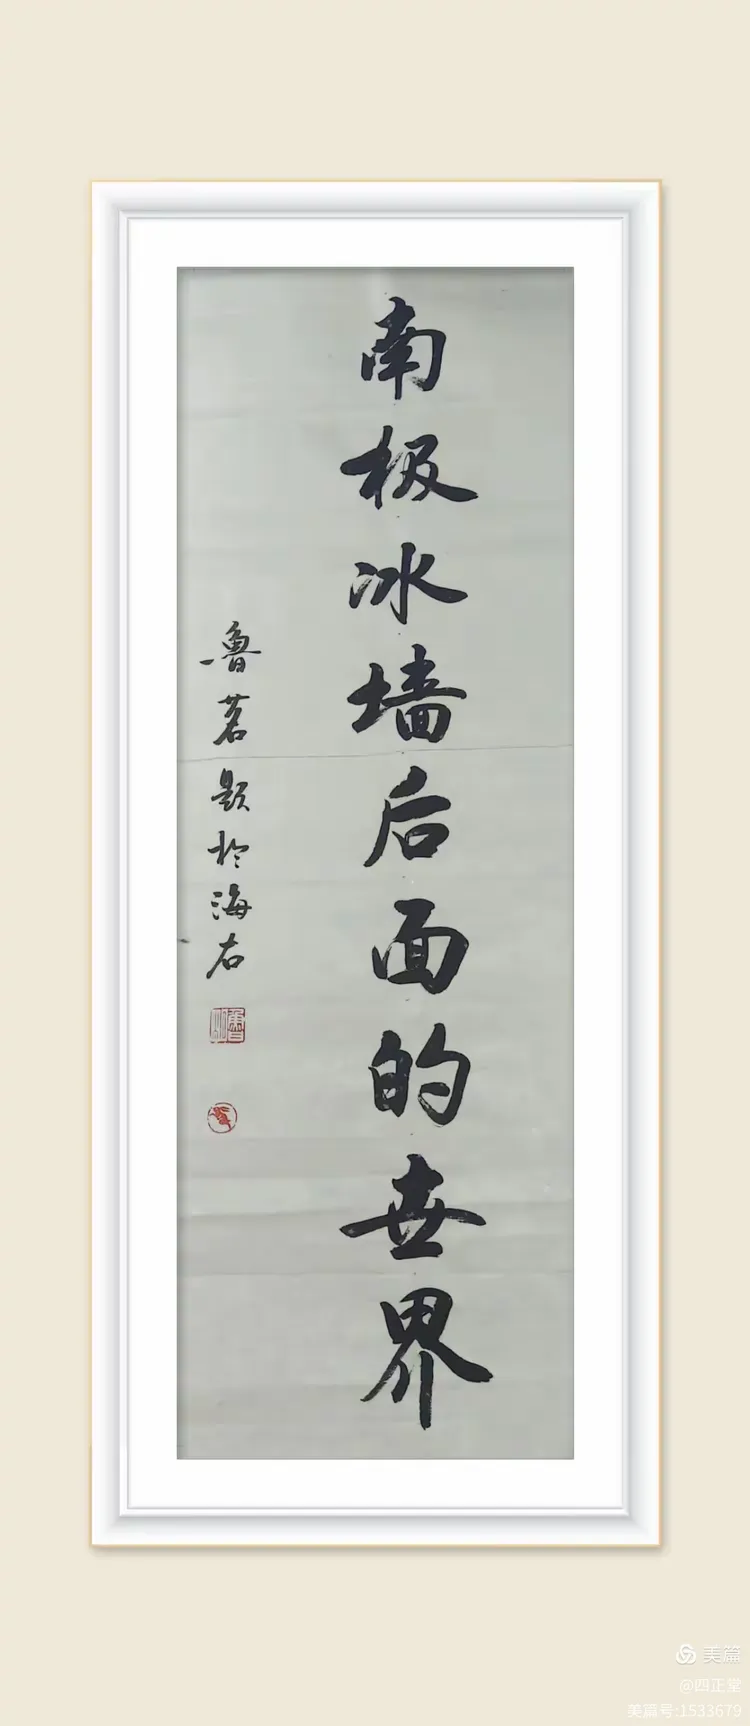 南极冰墙后面的世界
鲁茗题於海右
美篇
@四正堂
美篇号:1533679